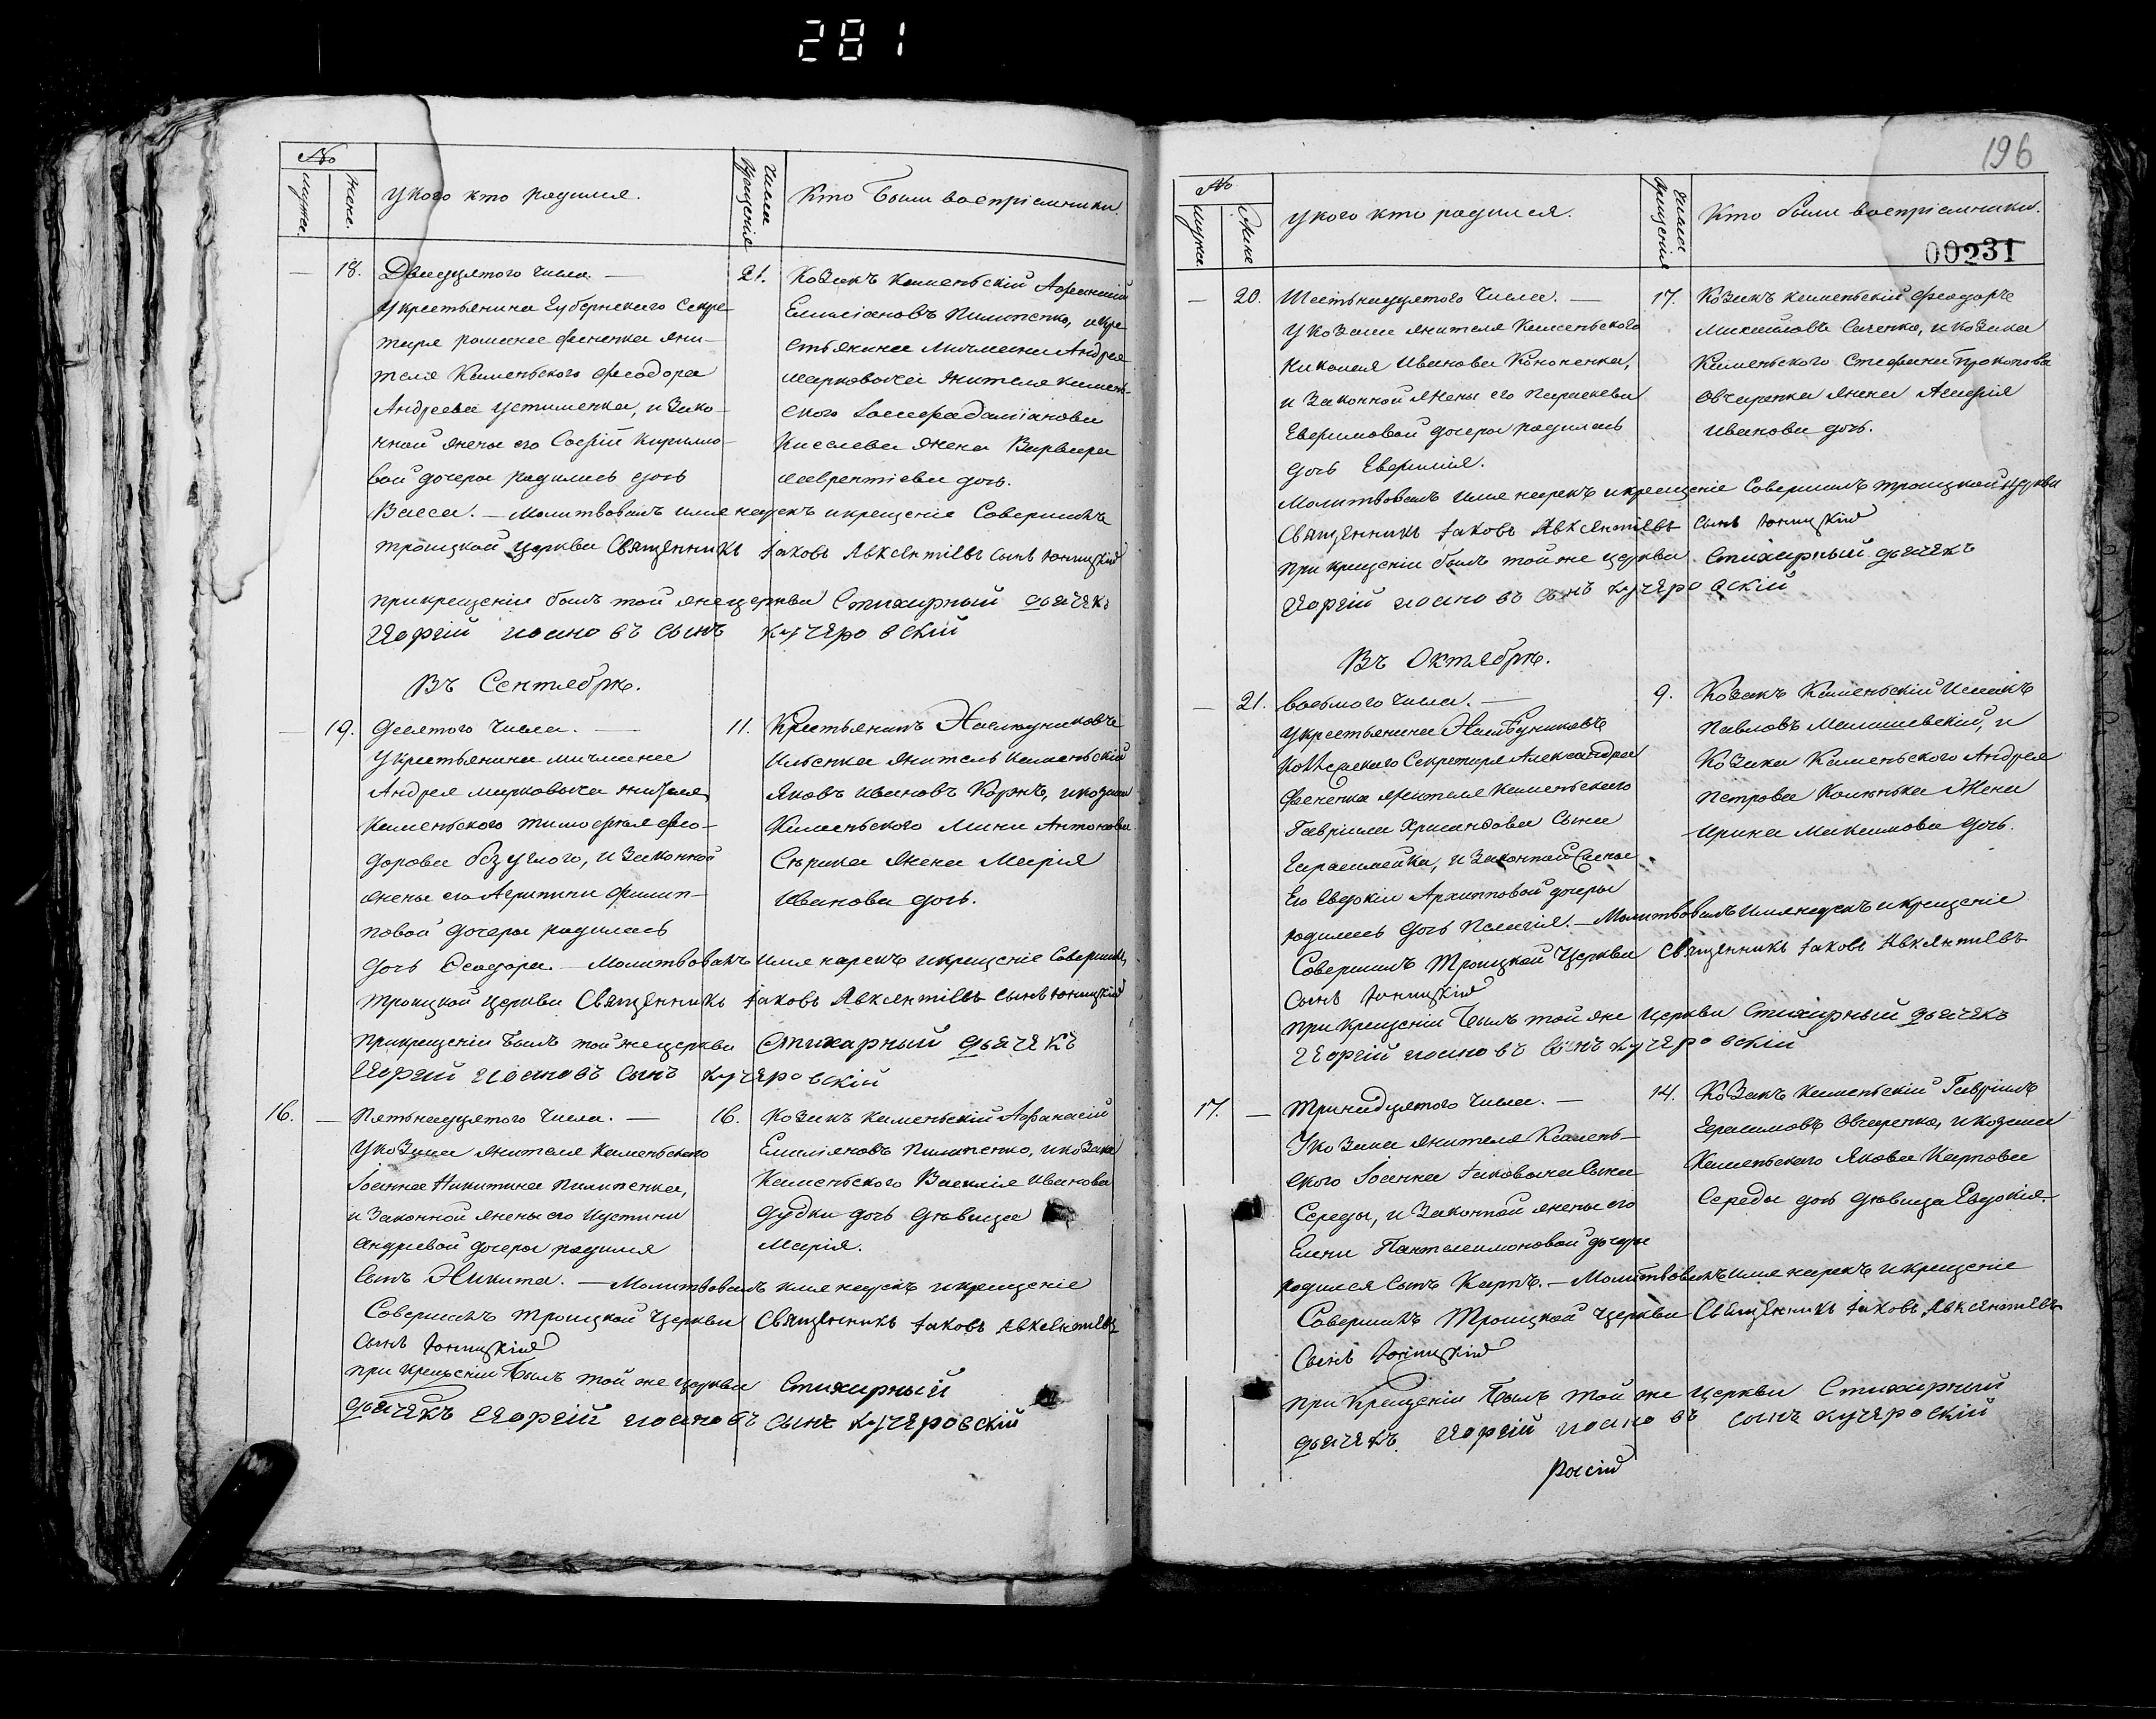 281
№
мужс.
женс.
У кого кто родился.
Числа крещенія
Кто были воспріемники.
— 18. Двадцятого числа. —
У крестьянина Губернскаго Секре-
таря романа фененка жи-
теля Каменьского Феодора
Андреева Устименка, и зако-
нной жены его Софіи Кирилло-
вой дочеры родилась дочь
Васса. — Молитвовалъ имя нарекъ и крещеніе Совершилъ
троицкой церкви Священникъ Іаковъ Авксентіевъ сынъ
при крещеніи былъ той же церкви Стихарный дьячекъ
Георгій иоановъ сынъ кучеровскій
21. Козакъ Каменьскій Афанасій
Емиліановъ Пилипенко, и кре
стьянина Мичмана Андрея
марковича жителя камень-
ского Іосифа даміанова
Киселева жена Варвара
лаврентіева дочь.
Въ Сентябрѣ.
— 19. Десятого числа. —
У крестьянина мичмана
Андрея марковича жителя
Каменьского тимофея фео-
дорова безуглого, и законной
жены его Агрипины филип-
повой дочеры родилась
дочь Феодора. — Молитвовалъ имя нарекъ и крещеніе Совершилъ
троицкой церкви Священникъ Іаковъ Авксентіевъ сынъ
при крещеніи былъ той же церкви Стихарный дьячекъ
Георгій иоановъ сынъ кучеровскій
11. Крестьянинъ Наслѣдниковъ
Ильенка житель каменьскій
Яковъ ивановъ Коржъ, и козака
Каменьского Мини Антонова
Сѣрика жена Марія
Иванова дочь.
16. — Пятьнадцятого числа. —
У козака жителя Каменьского
Іоанна Никитина Пилипенка,
и законной жены его Иустины
андреевой дочеры родился
сынъ Никита. — Молитвовалъ имя нарекъ и крещеніе
Совершилъ троицкой церкви Священникъ Іаковъ Авксентіевъ
сынъ
при крещеніи былъ той же церкви Стихарный
дьячекъ Георгій иоановъ сынъ кучеровскій
16. Козакъ каменьскій Афанасій
Емиліановъ Пилипенко, и козака
Каменьского Василія Иванова
дудки дочь дѣвица
Марія.
196
№
мужс.
женс
У кого кто родился.
Числа крещенія
Кто были воспріемники.
00231
— 20. Шестьнадцятого числа. —
У козака жителя Каменьского
Николая Иванова Кононенка,
и законной жены его Параскевы
Евфимовой дочеры родилась
дочь Евфимія.
Молитвовалъ имя нарекъ и крещеніе Совершилъ троицкой церкви
Священникъ Іаковъ Авксентіевъ сынъ
при крещеніи былъ той же церкви Стихарный дьячекъ
Георгій иоановъ сынъ кучеровскій
17. Козакъ каменьскій Феодоръ
Михайловъ Саченко, и козака
Каменьского Стефана Прокопова
Овчаренка жена Агафія
Иванова дочь.
Въ Октябрѣ.
— 21. восьмого числа. —
У крестьянина
Секретаря Александра
Фененка жителя Каменьского
Гавріила Хрисанфова сына
Герасимейка, и законной жены
Его Евдокіи Архипповой дочеры
родилась дочь Пелагія. — Молитвовалъ имя нарекъ и крещеніе
Совершилъ Троицкой Церкви Священникъ Іаковъ Авксентіевъ
сынъ
при крещеніи былъ той же церкви Стихарный дьячекъ
Георгій иоановъ сынъ кучеровскій
9. Козакъ Каменьскій Исаакъ
Павловъ Малишевскій, и
Козака Каменьского Андрея
Петрова жена
Ирина Максимова дочь.
17. — Тринадцятого числа. —
У козака жителя Камень-
ского Іоанна Іаковича сына
Середы, и законной жены его
Елены Пантелеимоновой дочеры
родился сынъ Карпъ. — Молитвовалъ имя нарекъ и крещеніе
Совершилъ Троицкой Церкви Священникъ Іаковъ Авксентіевъ
Сынъ
при Крещеніи былъ той же церкви Стихарный
дьячекъ Георгій иоановъ сынъ кучеровскій
14. Козакъ каменьскій Гавріилъ
Герасимовъ Овчаренко, и козака
Каменьского Якова Карпова
Середы дочь дѣвица Евдокія.